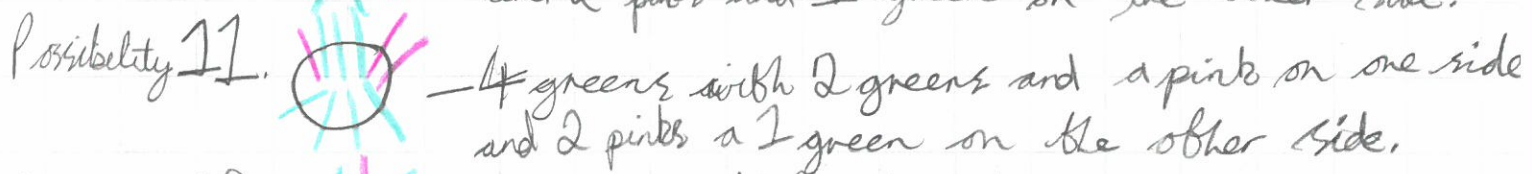 Possibelity 11. - 4 greens with 2 greens and a pink on one side
and 2 pinks a 1 green on the other side.